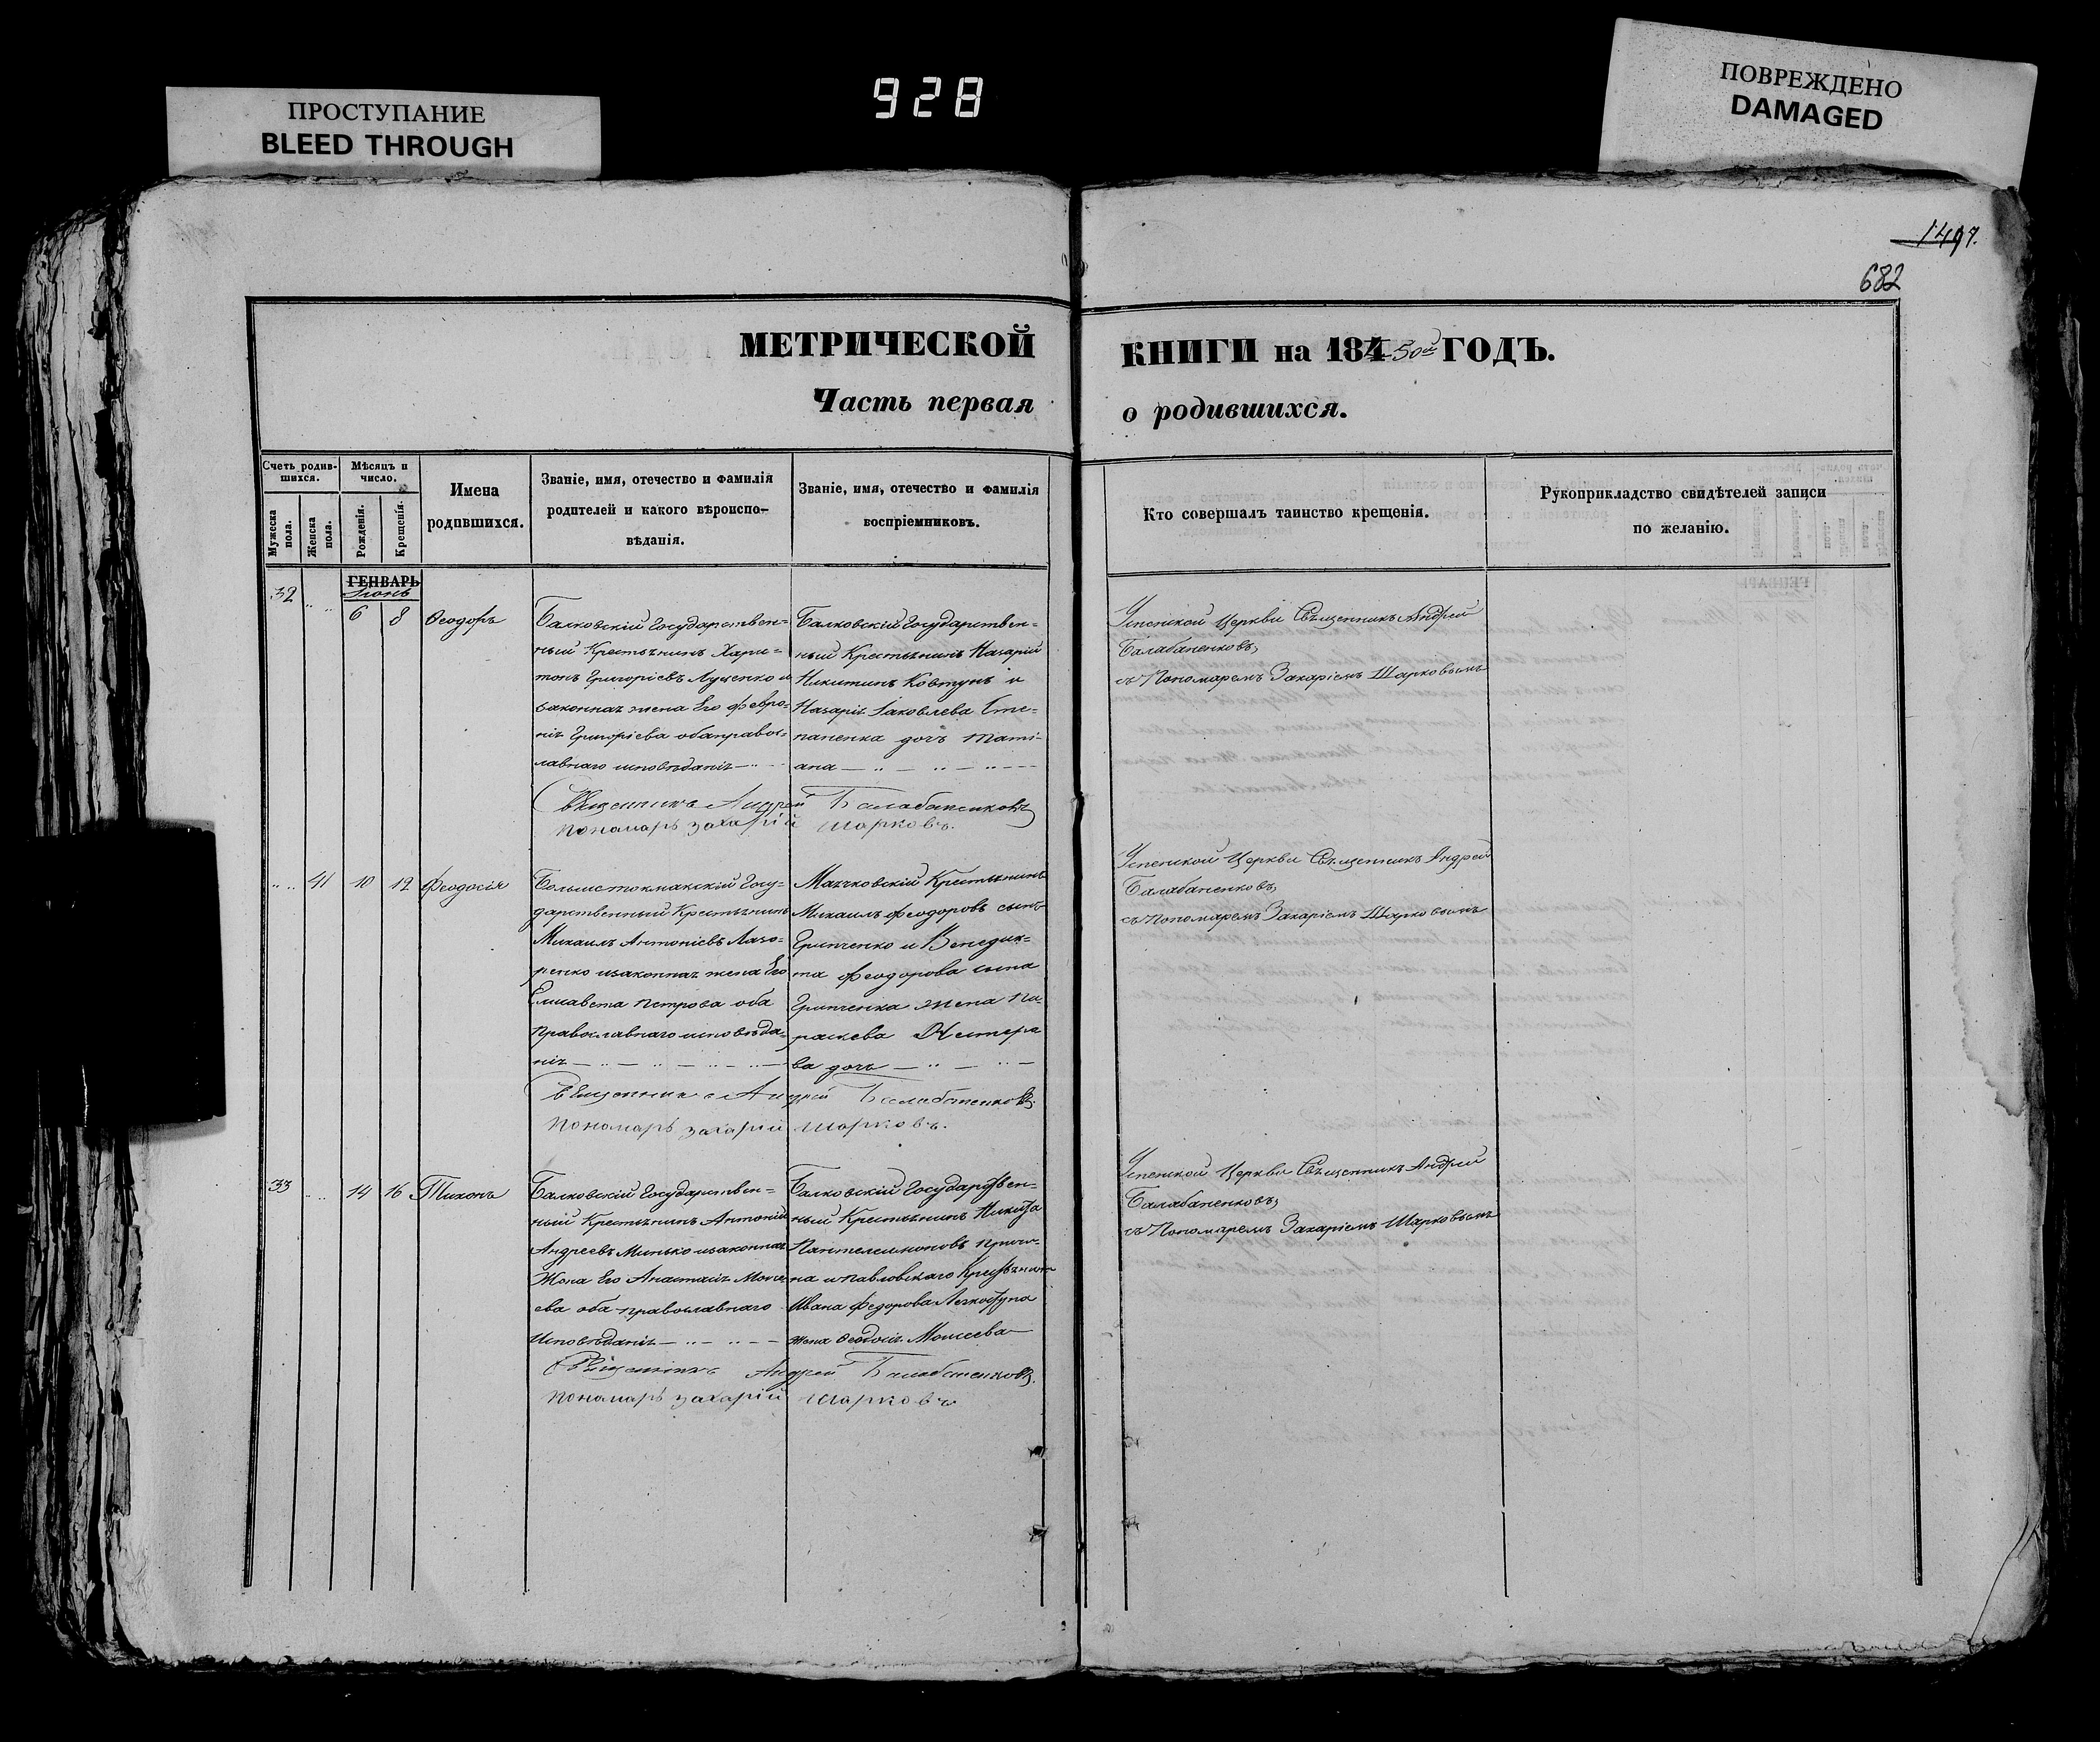 ПРОСТУПАНИЕ
BLEED THROUGH
928
ПОВРЕЖДЕНО
DAMAGED
1497.
682
МЕТРИЧЕСКОЙ
КНИГИ на 184 50й ГОДЪ.
Часть первая
о родившихся.
Счетъ родив-
шихся.
Мужеска
пола.
Женска
пола.
Мѣсяцъ и
число.
Рожденія.
Крещенія.
Имена
родившихся.
Званіе, имя, отечество и фамилія
родителей и какого вѣроиспо-
вѣданія.
Званіе, имя, отечество и фамилія
воспріемниковъ.
Кто совершалъ таинство крещенія.
Рукоприкладство свидѣтелей записи
по желанію.
ГЕНВАРЬ
Іюнь
32
6
8
Ѳеодоръ
Балковскій Государствен=
ный Крестьянинъ Хари=
тонъ Григорієвъ Луценко и
законная жена Его Февро=
нія Григоріева оба правос=
лавнаго исповѣданія
Балковскій Государствен=
ный Крестьянинъ Назарій
Никитинъ Ковтунъ и
Назарія Іаковлева Сте=
паненка дочь Тати=
ана
Священникъ Андрей Балабаненковъ
пономарь Захарій Шарковъ.
Успенской Церкви Священникъ Андрей
Балабаненковъ,
съ Пономаремъ Захаріемъ Шарковымъ
41
10
12
Феодосія
Большетокмакскій Госу=
дарственный Крестьянинъ
Михаилъ Антоніевъ Лазо=
ренко и законная жена Его
Елисавета Петрова оба
Православнаго исповѣда=
нія
Маячковскій Крестьянинъ
Михаилъ Феодоровъ сынъ
Гринченко и Венедик=
та Феодорова сына
Гринченка жена Па=
раскева Нестеро
ва дочь
Священникъ Андрей Балабаненковъ.
пономарь Захарій Шарковъ.
Успенской Церкви Священникъ Андрей
Балабаненковъ,
съ Пономаремъ Захаріемъ Шарковымъ
33
14
16
Тихонъ
Балковскій Государствен=
ный Крестьянинъ Антоній
Андреевъ Минько и законная
Жена Его Анастасія Моисе
ева оба православнаго
Исповѣданія
Балковскій Государствен=
ный Крестьянинъ Никита
Пантелеимоновъ
на и Павловскаго Крестьянина
Ивана Федорова Легкоступа
жена Ѳеодосія Моисеева
Священникъ Андрей Балабаненковъ.
пономарь Захарій Шарковъ
Успенской Церкви Священникъ Андрей
Балабаненковъ,
съ Пономаремъ Захаріемъ Шарковымъ